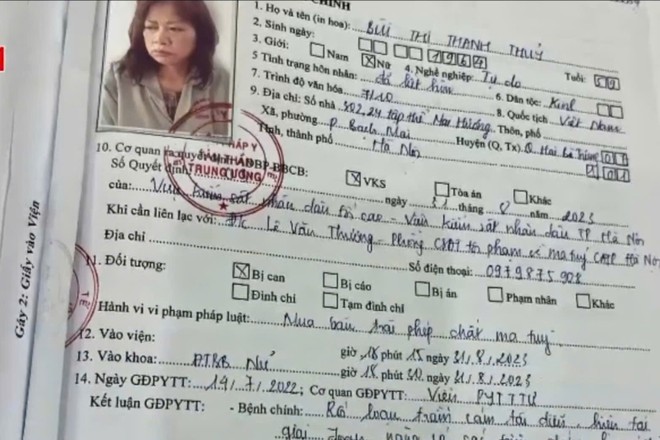 CHÍNH
1. Họ và tên (in hoa): BÙI THỊ THANH THUỶ
2. Sinh ngày: 1964 Tuổi: 59
3. Giới: Nam Nữ 4. Nghề nghiệp: Tự do
5 Tình trạng hôn nhân: đã kết hôn 6. Dân tộc: Kinh
7. Trình độ văn hóa 7/10 8. Quốc tịch: Việt Nam
9. Địa chỉ: Số nhà 302.24 tập thể Thôn, phố
Xã, phường P. Bạch Mai Huyện (Q, Tx) Q. Hai Bà Trưng
Tỉnh, thành phố Hà Nội
10. Cơ quan ra quyết định ĐBBCB: VKS Tòa án Khác
Số Quyết định ngày 31 tháng 8 năm 2023
của: Viện kiểm sát nhân dân tối cao - Viện kiểm sát nhân dân TP Hà Nội
Khi cần liên lạc với: Đ/c Lê Văn Thưởng - Phòng CSĐT tội phạm về ma tuý CATP Hà Nội
Địa chỉ Số điện thoại: 0979875908
11. Đối tượng: Bị can Bị cáo Bị án Phạm nhân Khác
Đình chỉ Tạm đình chỉ
Hành vi vi phạm pháp luật: Mua bán trái phép chất ma tuý
12. Vào viện: giờ 18 phút 15 ngày 31/8/2023
13. Vào khoa: ĐTBB Nữ giờ 18 phút 30 ngày 31/8/2023
14. Ngày GĐPYTT: 19/7/2022; Cơ quan GĐPYTT: Viện PYTTTƯ
Kết luận GĐPYTT: - Bệnh chính: Rối loạn trầm cảm tái diễn, hiện tại
giai
Gáy 2: Giấy vào Viện
PHÁP Y
TRUNG ƯƠNG